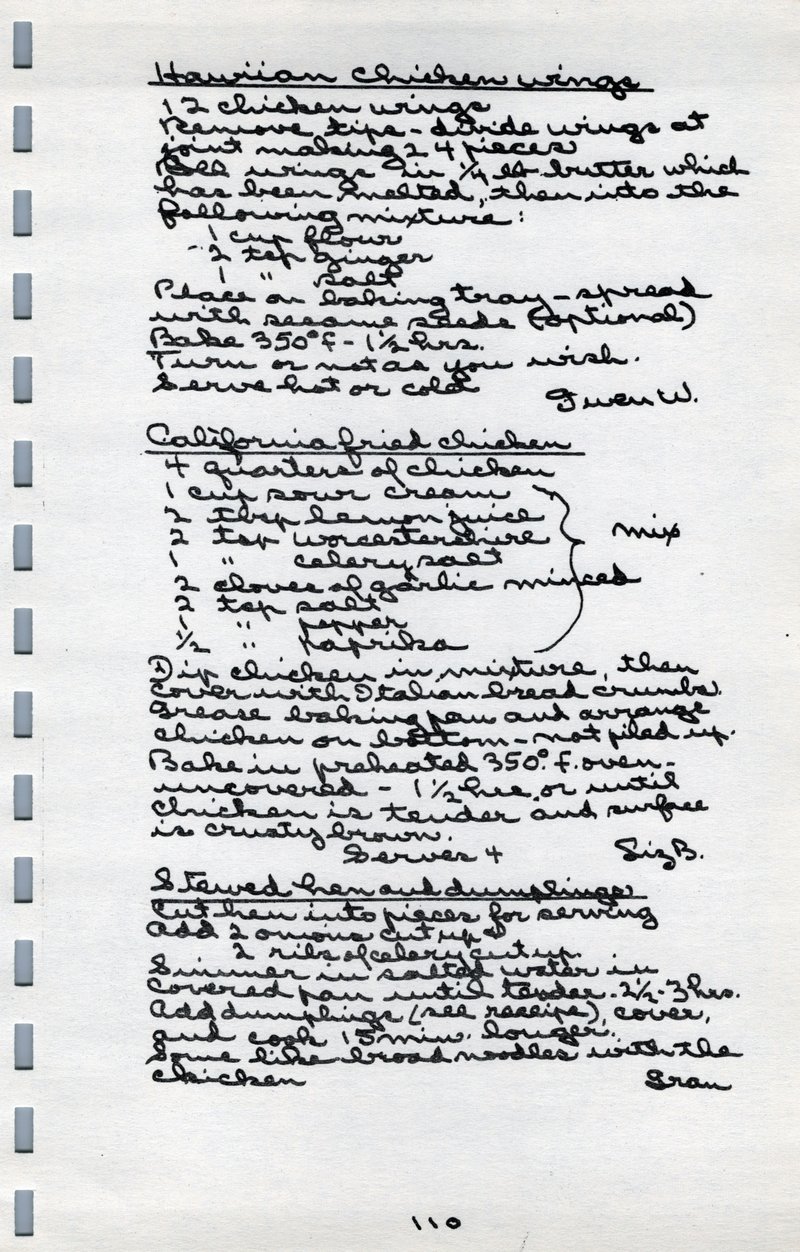 Hawiian chicken wings
12 chicken wings
Remove tips - divide wings at
joint making 24 pieces
Roll wings in ¼ lb butter which
has been melted, then into the
following mixture:
1 cup flour
2 tsp ginger
1 " salt
Place on baking tray - spread
with sesame seeds (optional)
Bake 350° f - 1½ hrs.
Turn or not as you wish.
Serve hot or cold
Gwen W.
California fried chicken
4 quarters of chicken
1 cup sour cream
2 tbsp lemon juice
2 tsp worcestershire mix
1 " celery salt
2 cloves of garlic minced
2 tsp salt
1 " pepper
½ " paprika
Dip chicken in mixture, then
cover with Italian bread crumbs.
Grease baking pan and arrange
chicken on bottom - not piled up.
Bake in preheated 350° f. oven -
uncovered - 1½ hrs or until
chicken is tender and surface
is crusty brown.
Serves 4 Liz B.
Stewed hen and dumplings
Cut hen into pieces for serving
Add 2 onions cut up
2 ribs of celery cut up.
Simmer in salted water in
covered pan until tender. 2½-3 hrs.
Add dumplings (see receipe), cover,
and cook 15 min. longer.
Some like broad noodles with the
chicken Gran
110